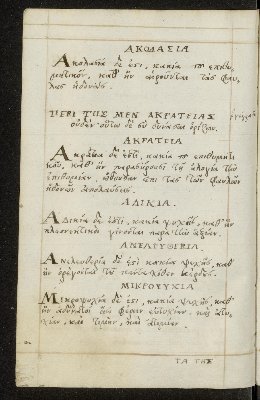 ΑΚΟΛΑΣΙΑ
Ἀκολασία δέ ἐστι, κακία τοῦ ἐπιθυ-
μητικοῦ, καθ' ἣν αἱροῦνται τὰς φαύ-
λας ἡδονάς.
ΠΕΡΙ ΤΗΣ ΜΕΝ ΑΚΡΑΤΕΙΑΣ
ΑΚΡΑΤΕΙΑ
Ἀκράτεια δέ ἐστι, κακία τοῦ ἐπιθυμητι
κοῦ, καθ' ἣν παραβιάζονται τῇ ἀλογίᾳ τὴν
ἐπιθυμίαν ὠθοῦσαν ἐπὶ τὰς τῶν φαύλων
ἡδονῶν ἀπολαύσεις.
ΑΔΙΚΙΑ.
Ἀδικία δέ ἐστι, κακία ψυχῆς, καθ' ἣν
πλεονεκτικοὶ γίνονται παρὰ τὴν ἀξίαν.
ΑΝΕΛΕΥΘΕΡΙΑ.
Ἀνελευθερία δέ ἐστι κακία ψυχῆς, καθ'
ἣν ὀρέγονται τοῦ πανταχόθεν κέρδους.
ΜΙΚΡΟΨΥΧΙΑ
Μικροψυχία δέ ἐστι, κακία ψυχῆς, καθ'
ἣν ἀδύνατοί εἰσι φέρειν εὐτυχίαν καὶ ἀτυ-
χίαν, καὶ τιμὴν, καὶ ἀτιμίαν.
ΤΑ ΤΗΣ